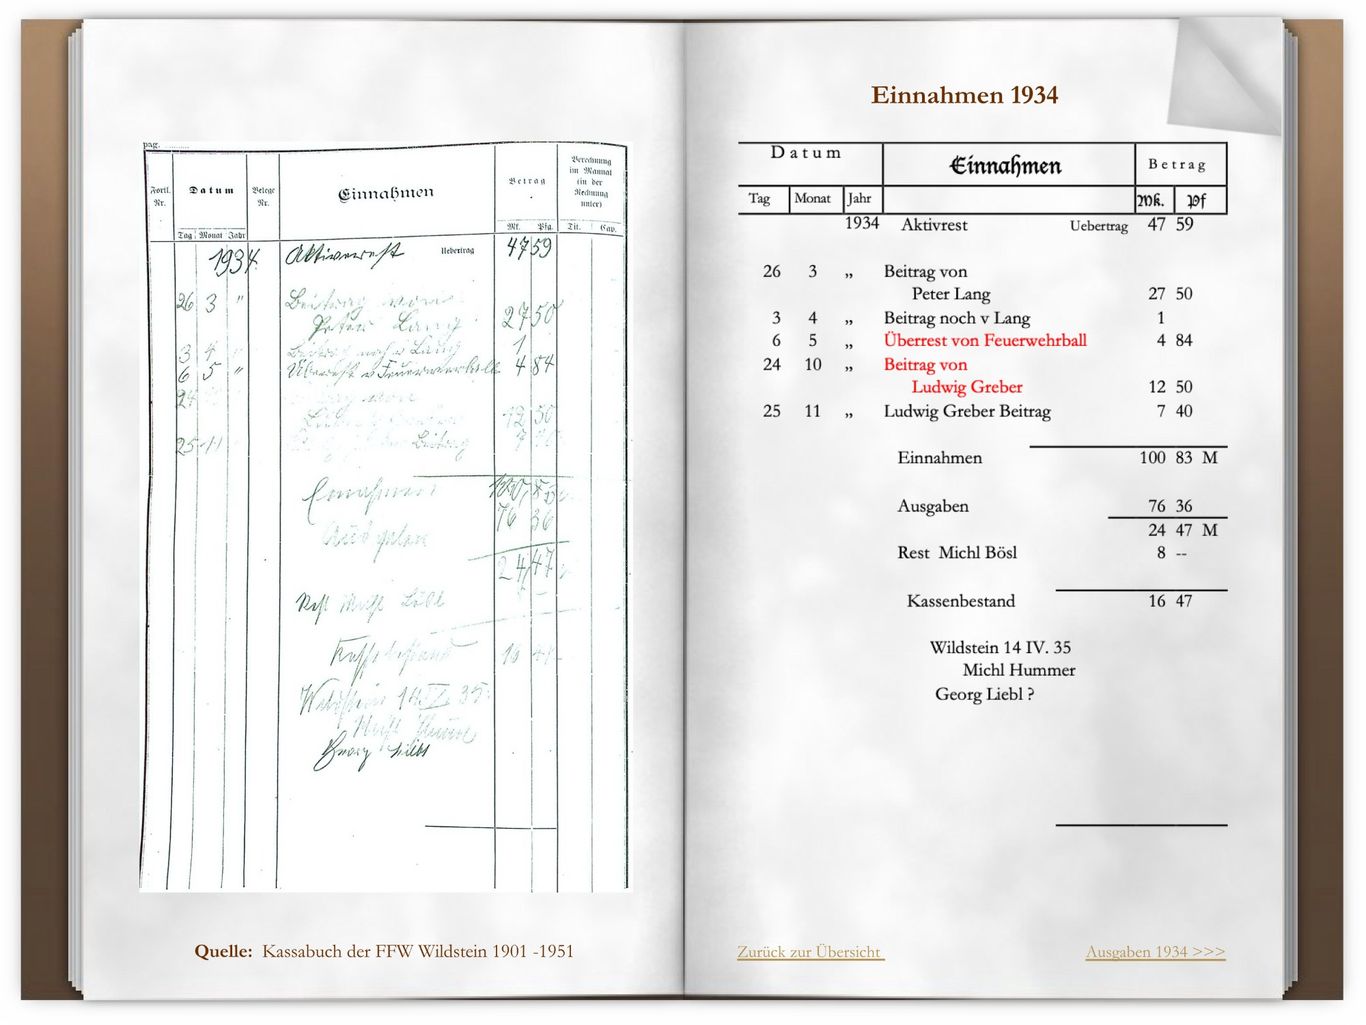 pag. ..........
Fortl. Nr.
Datum
Belege Nr.
Einnahmen
Betrag
Berechnung
im Mannal
(in der
Rechnung
unter)
Tag Monat Jahr
Mk. Pfg. Tit. Cap.
1934. Aktivrest Uebertrag 47 59
26 3 " Beitrag von
Peter Lang 27 50
3 4 " Beitrag noch v Lang 1
6 5 " Überrest v Feuerwehrball 4 84
24
12 50
25 11 Beitrag 7 40
Einnahmen 100,83
Ausgaben 76 36
24 47
Rest Michl
Kassabestand 16 47
Wildstein 14 IV. 35
Georg Liebl
Quelle: Kassabuch der FFW Wildstein 1901 -1951
Einnahmen 1934
Datum Einnahmen Betrag
Tag Monat Jahr Mk. Pf
1934 Aktivrest Uebertrag 47 59
26 3 „ Beitrag von
Peter Lang 27 50
3 4 „ Beitrag noch v Lang 1
6 5 „ Überrest von Feuerwehrball 4 84
24 10 „ Beitrag von
Ludwig Greber 12 50
25 11 „ Ludwig Greber Beitrag 7 40
Einnahmen 100 83 M
Ausgaben 76 36
24 47 M
Rest Michl Bösl 8 --
Kassenbestand 16 47
Wildstein 14 IV. 35
Michl Hummer
Georg Liebl ?
Zurück zur Übersicht
Ausgaben 1934 >>>